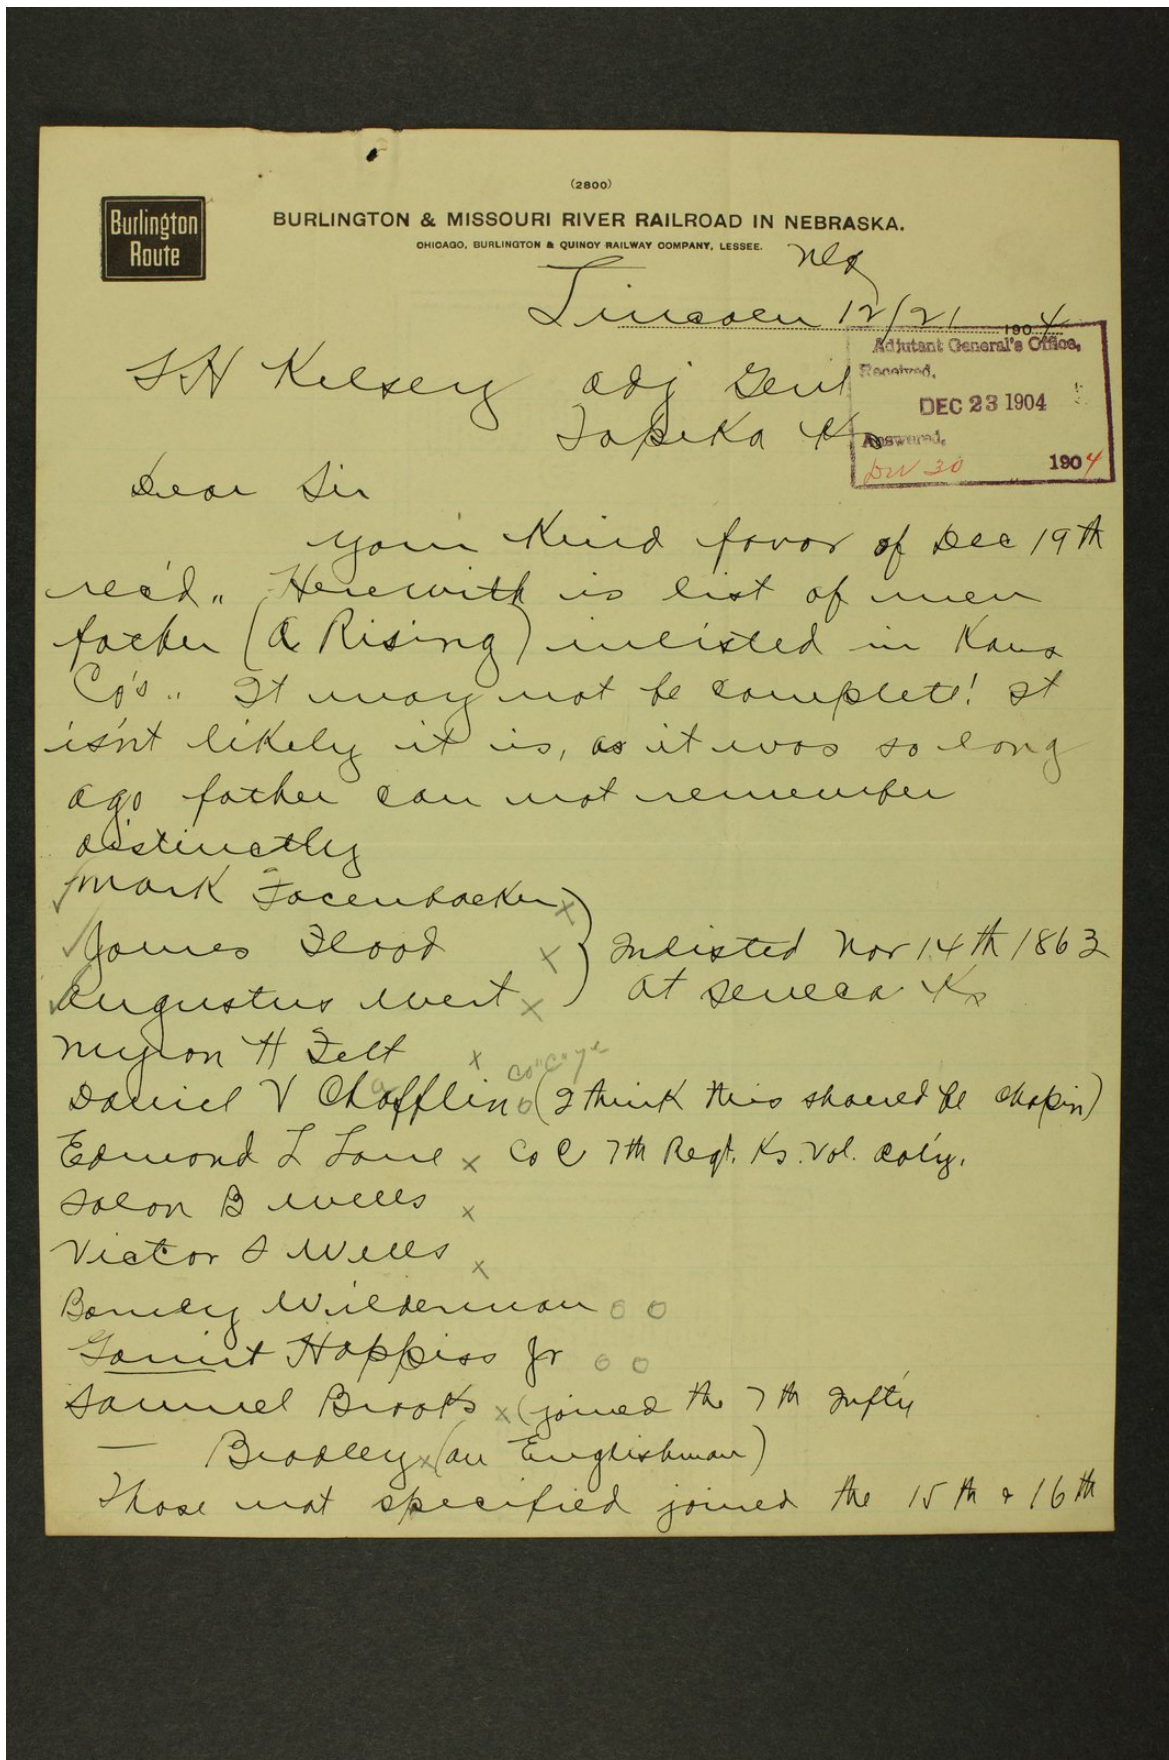 (2800)
Burlington
Route
BURLINGTON & MISSOURI RIVER RAILROAD IN NEBRASKA.
CHICAGO, BURLINGTON & QUINCY RAILWAY COMPANY, LESSEE.
Neb
Lincoln 12/21 1904
Adjutant General's Office,
Received,
DEC 23 1904
Answered,
30 1904
S H Kelsey Adj Genl
Topeka Ks
Dear Sir
Your Kind favor of Dec 19th
rec'd,, Herewith is list of men
father (A Rising) inlisted in Kans
Co's,, It may not be complete! It
isn't likely it is, as it was so long
ago father can not remember
distinctly
Mark Facenbacker x
James Flood x } Inlisted Nov 14th 1863
Augustus West x at Seneca Ks
Myron H Felt x
Co "C" 7th
Daniel V Chafflin o (I think this should be Chapin)
Edmond L Lane x Co C 7th Regt. Ks. Vol. Cal'y.
Solon B Wells x
Victor S Wells x
Wilderman o o
Happiss Jr o o
Samuel Brooks x (joined the 7th Infty
— Bradley x (an Englishman)
Those not specified joined the 15th & 16th